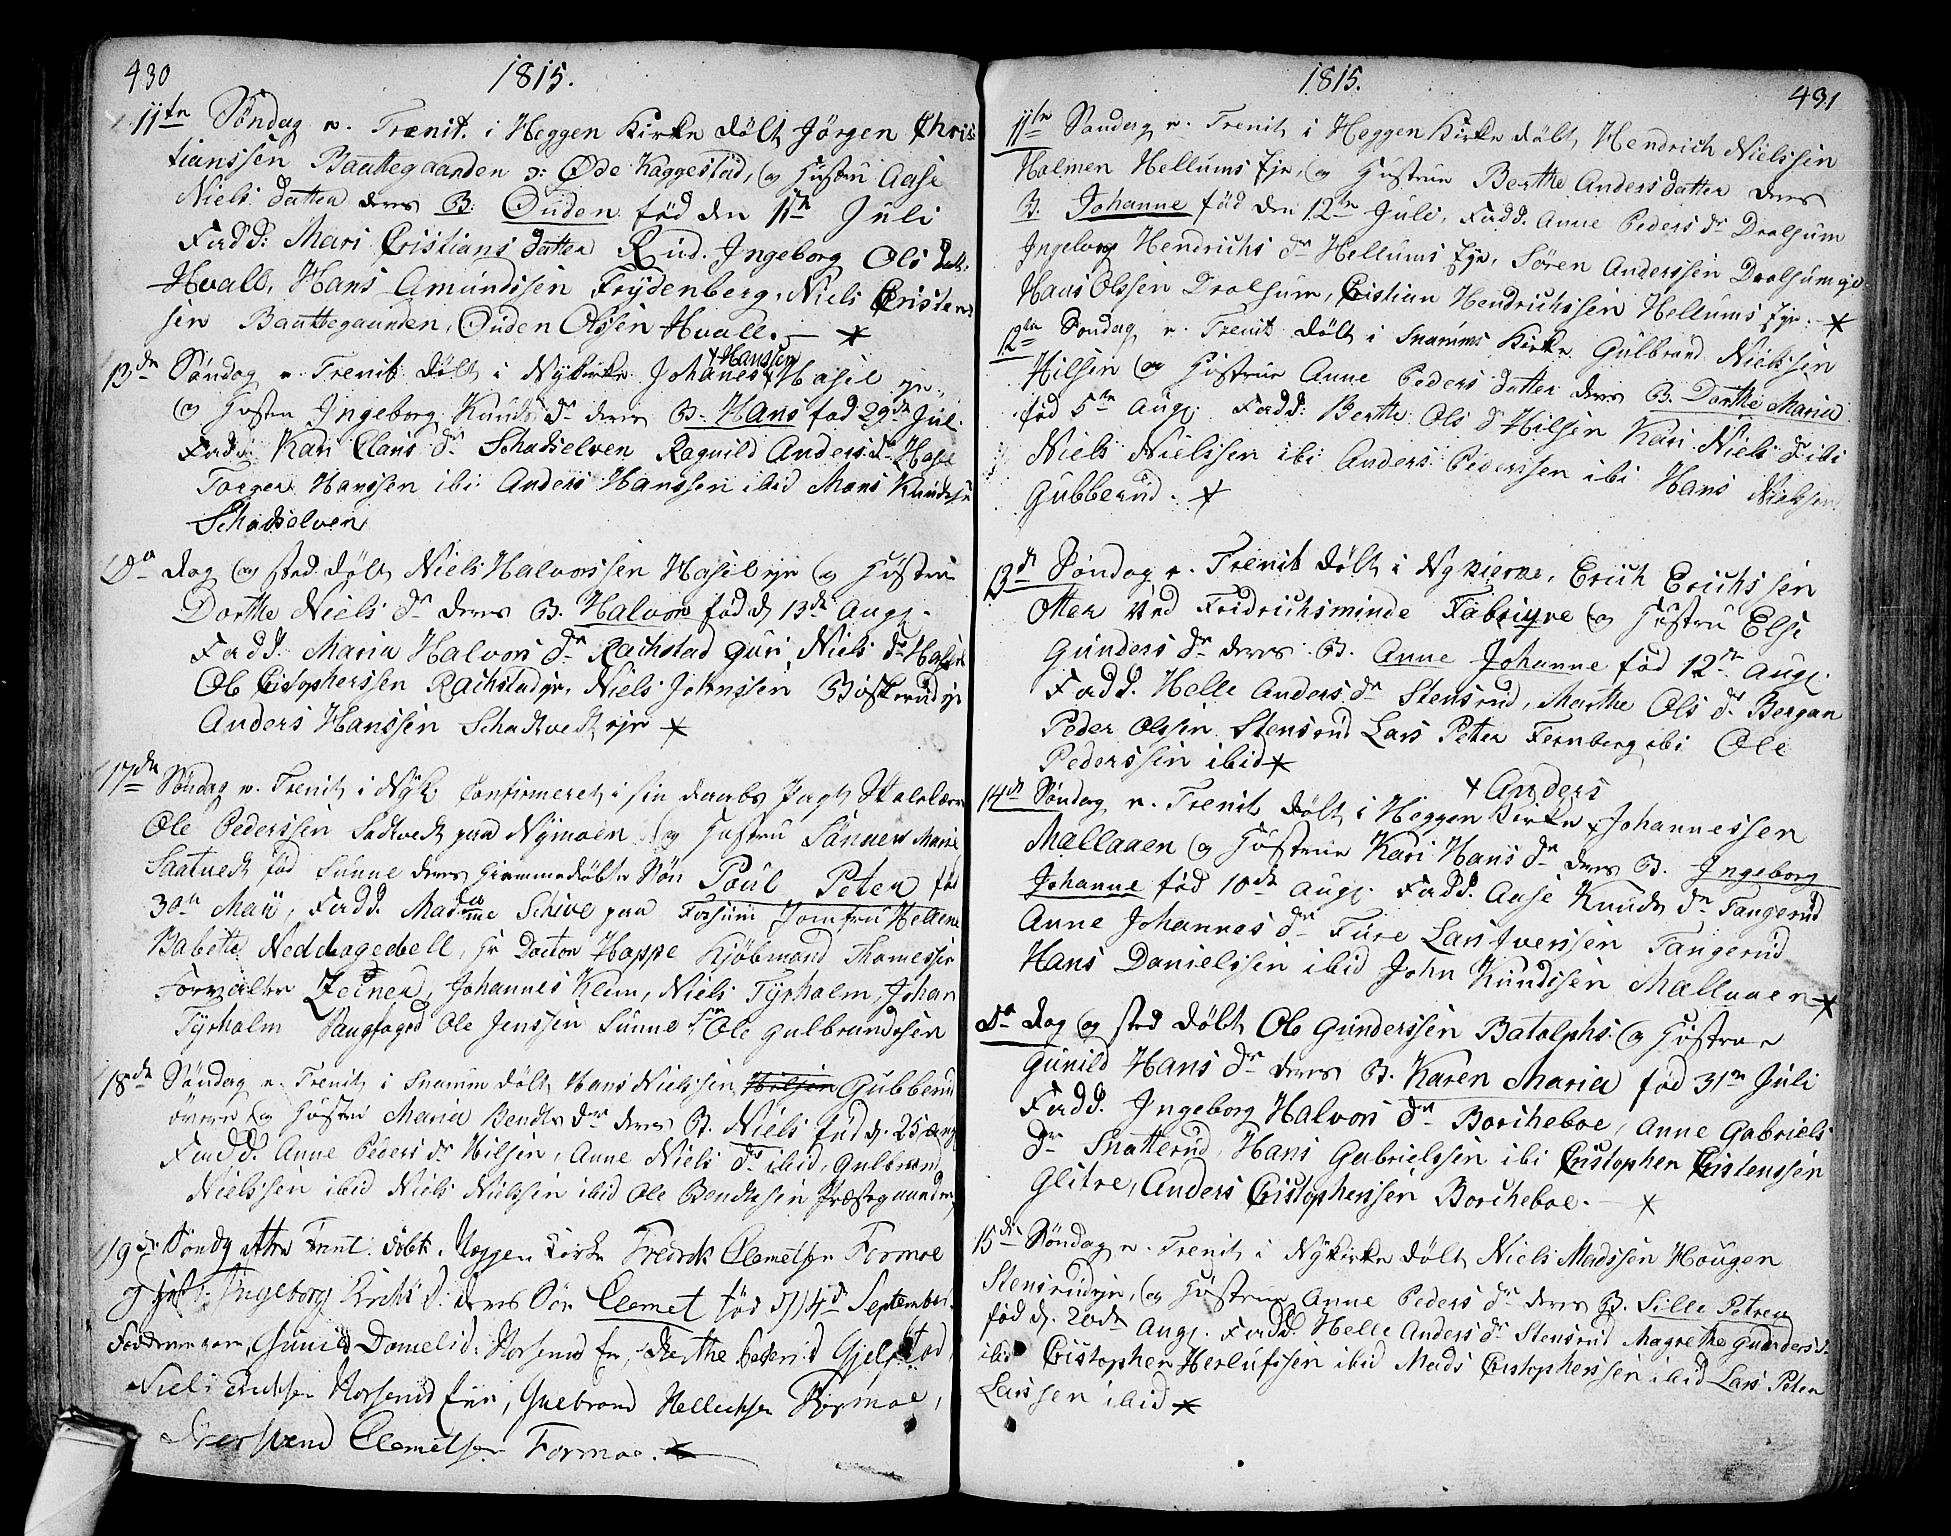 430
1815.
11te Søndag e. Trænit. i Heggen Kirke døbt Jörgen Chris
tianssen Baattegaarden o: Øde Kaggestad, og Hustru Aase
Niels datter deres B: Ouden fød den 11te Juli
Fadd: Mari Cristians datter Rud. Ingeborg Ols dat.
Hvall, Hans Amundssen Frydenberg, Niels Cristen
sen Baattegaarden, Ouden Olssen Hvall. —
13de Søndag e. Trenit døbt i Nykirke Johanes Hanssen Hasel eje
og Hustru Ingeborg Knuds dr deres B. Hans fød 29de Jul.
Fadd: Kari Claus dr Schadselven Ragnild Anders dr Hasel
Torger Hanssen ibi Anders Hanssen ibid Mons Knudssen
Schadselven
Do dag og sted døbt Niels Halvorssen Hasel eje og Hustrue
Dorthe Niels dr deres B. Halvor fød d. 13de Aug.
Fadd. Maria Halvors dr Rachstad Guri Niels dr Hasel
Ole Cristopherssen Rachstadeje, Niels Johnssen Buskerudeje
Anders Hanssen Schadtvedt eje
17de Søndag e. Trenit i Nyk. Confirmeret i sin daabs Pagt Skolelærer
Ole Pederssen Sadtvedt paa Nymoen og Hustru Sanner Marie
Saatvedt fød Sunne deres hiemmedøbte Søn Poul Peter fød
30te Maii, Fadd. Madame Schive paa Fossum Jomfru Hellene
Babette Neddagedbell, Hr Doctor Hoppe Kjøbmand Thomessen
Forvalter Zeiner, Johannes Klem, Niels Tyrholm, Johan
Tyrholm Vaugfoged Ole Jenssen Sunne Ole Gulbrandssen
18nde Søndag e. Trenit i Snarum døbt Hans Nielssen Hilsen Gubberud
øvere og Hustru Maria Bendts dr deres B. Niels fød d. 25 Aug
Fadd. Anne Peders dr Hilsen, Anne Niels dr ibid, Gulbrand
Nielssen ibid Niels Nielssen ibid Ole Bendtssen Præstegaarden
19de Søndg efter Trint. døbt. Heggen Kirke Fredrik Clemetsen Formoe
og Hust: Ingeborg Erichs d: deres Søn Clemet fød d/14de September.
Fadderne vare, Gunild Danieled: Horsrud Eie, Berthe Peders d Gjelstad
Niels Erichsen Horsrud Eier, Gulbrand Hellechsen Formoe,
Svend Clemetsen Formoe.
1815.
431
11te Søndag e. Trenit i Heggen Kirke døbt, Hendrich Nielssen
Holmen Hellums Eje, og Hustrue Berthe Anders datter deres
B. Johanne fød den 12te Juli, Fadd. Anne Peders dr Drolsum
Ingeborg Hendrichs dr Hellums Eje, Søren Anderssen Drolsum eje
Hans Olssen Drolsum, Cristian Hendrichssen Hellums Eje.
12te Søndag e. Trenit døbt i Snarums Kirke Gulbrand Nielssen
Hilsen og Hustrue Anne Peders datter deres B. Dorthe Maria
fød 5te Aug. Fadd: Berthe Ols d Hilsen Kari Niels dr ibi
Niels Nielssen ibi Anders Pederssen ibi Hans Nielssen
Gubberud.
13de Søndag e. Trenit døbt i Nykierne, Erich Erichssen
Otter ved Fridrichsminde Fabriqve og Hustru Else
Gunders dr deres B. Anne Johanne fød 12te Aug.
Fadd. Helle Anders dr Stensrud, Marthe Ols dr Bergan
Peder Olssen Stensrud Lars Peter Fernberg ibi Ole
Pederssen ibid
14de Søndag e. Trenit døbt i Heggen Kirke Anders Johannessen
Mællaaen og Hustrue Kari Hans dr deres B. Ingeborg
Johanne fød 10de Aug. Fadd. Aase Knuds dr Tangerud
Anne Johannes dr Fure Lars Iverssen Tangerud
Hans Danielssen ibid John Knudssen Mællaaen
Do dag og sted døbt Ole Gunderssen Batolphs og Hustrue
Gunild Hans dr deres B. Karen Maria fød 31te Juli
Fadd. Ingeborg Halvors dr Borcheboe, Anne Gabriels
dr Snatterud, Hans Gabrielssen ibi Cristopher Cristenssen
Glitre, Anders Cristopherssen Borcheboe. —
15de Søndag e. Trenit i Nykirke døbt Niels Madssen Hougen
Stensrudeje, og Hustrue Anne Peders dr deres B. Sille Petrea
fød d. 20de Aug. Fadd. Helle Anders dr Stensrud Magrethe Gunders d
ibid Cristopher Herlufssen ibid Mads Cristopherssen ibid Lars Peter
Larssen ibid